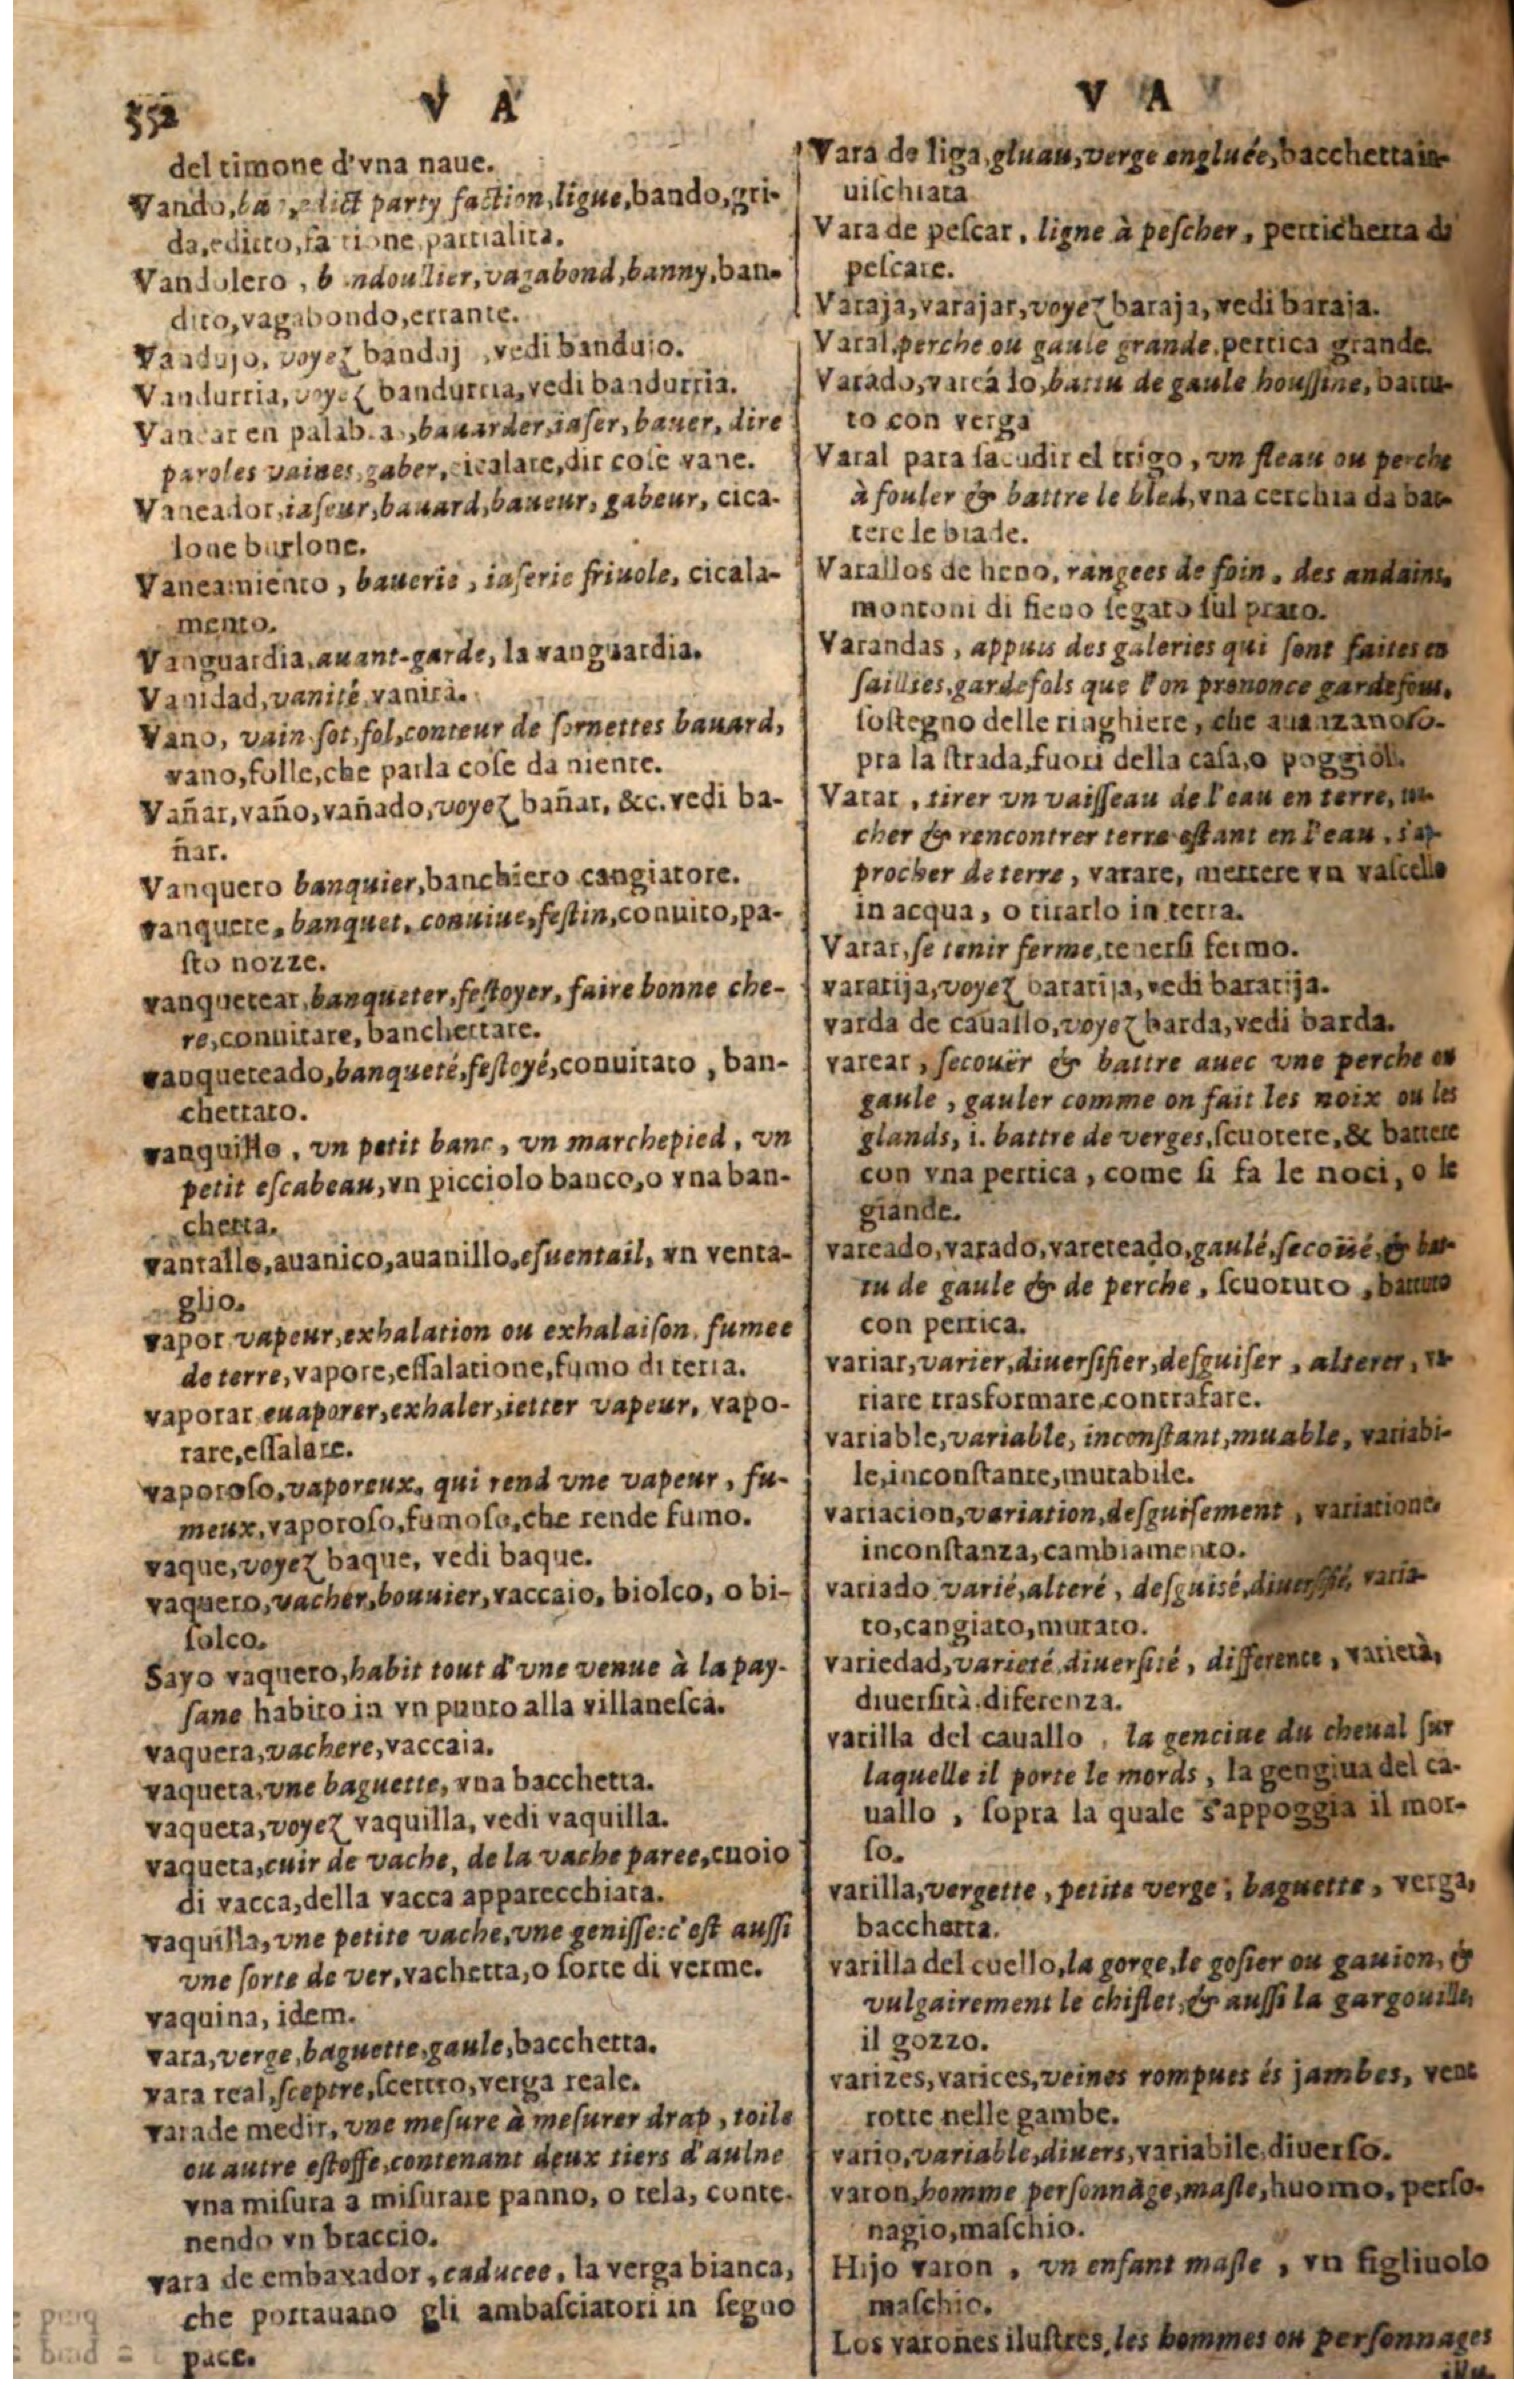 552
V A
del timone d'vna naue.
Vando, edict party faction, ligue, bando, gri-
da, editto, fa tione, partialità.
Vandolero, bandoullier, vagabond, banny, ban-
dito, vagabondo, errante.
Vandujo, voyez banduj, vedi bandujo.
Vandurria, voyez bandurria, vedi bandurria.
Vanear en palabras, bauarder, iaſer, bauer, dire
paroles vaines, gaber, cicalare, dir coſe vane.
Vaneador, iaſeur, bauard, baueur, gabeur, cica-
lone burlone.
Vaneamiento, bauerie, iaſerie friuole, cicala-
mento.
Vanguardia, auant-garde, la vanguardia.
Vanidad, vanité, vanità.
Vano, vain ſot, fol, conteur de ſornettes bauard,
vano, folle, che parla coſe da niente.
Vañar, vaño, vañado, voyez bañar, &c. vedi ba-
ñar.
Vanquero banquier, banchiero cangiatore.
vanquete, banquet, conuiue, feſtin, conuito, pa-
ſto nozze.
vanquetear, banqueter, feſtoyer, faire bonne che-
re, conuitare, banchettare.
vanqueteado, banqueté, feſtoyé, conuitato, ban-
chettato.
vanquillo, vn petit banc, vn marchepied, vn
petit eſcabeau, vn picciolo banco, o vna ban-
chetta.
vantalle, auanico, auanillo, eſuentail, vn venta-
glio.
vapor vapeur, exhalation ou exhalaiſon, fumee
de terre, vapore, eſſalatione, fumo di terra.
vaporar euaporer, exhaler, ietter vapeur, vapo-
rare, eſſalare.
vaporoſo, vaporeux, qui rend vne vapeur, fu-
meux, vaporoſo, fumoſo, che rende fumo.
vaque, voyez baque, vedi baque.
vaquero, vacher, bouuier, vaccaio, biolco, o bi-
folco.
Sayo vaquero, habit tout d'vne venue à la pay-
ſane habito in vn punto alla villaneſca.
vaquera, vachere, vaccaia.
vaqueta, vne baguette, vna bacchetta.
vaqueta, voyez vaquilla, vedi vaquilla.
vaqueta, cuir de vache, de la vache paree, cuoio
di vacca, della vacca apparecchiata.
vaquilla, vne petite vache, vne geniſſe: c'eſt auſſi
vne ſorte de ver, vachetta, o ſorte di verme.
vaquina, idem.
vara, verge, baguette, gaule, bacchetta.
vara real, ſceptre, ſcettro, verga reale.
vara de medir, vne meſure à meſurer drap, toile
ou autre eſtoffe, contenant deux tiers d'aulne
vna miſura a miſurare panno, o tela, conte-
nendo vn braccio.
vara de embaxador, caducee, la verga bianca,
che portauano gli ambaſciatori in ſegno
pace.
V A
Vara de liga, gluau, verge engluée, bacchetta in-
uiſchiata
Vara de peſcar, ligne à peſcher, pertichetta di
peſcare.
Varaja, varajar, voyez baraja, vedi baraja.
Varal, perche ou gaule grande, pertica grande.
Varado, vareado, battu de gaule houſſine, battu-
to con verga
Varal para ſacudir el trigo, vn fleau ou perche
à fouler & battre le bled, vna cerchia da bat-
tere le biade.
Varallos de heno, rangees de foin, des andains,
montoni di fieno ſegato ſul prato.
Varandas, appuis des galeries qui ſont faites en
ſaillies, gardefols que l'on prononce gardefous,
ſoſtegno delle ringhiere, che auanzano ſo-
pra la ſtrada, fuori della caſa, o poggioli.
Varar, tirer vn vaiſſeau de l'eau en terre, tu-
cher & rencontrer terre eſtant en l'eau, s'ap-
procher de terre, varare, mettere vn vaſcello
in acqua, o tirarlo in terra.
Varar, ſe tenir ferme, tenerſi fermo.
varatija, voyez baratija, vedi baratija.
varda de cauallo, voyez barda, vedi barda.
varear, ſecouër & battre auec vne perche ou
gaule, gauler comme on fait les noix ou les
glands, i. battre de verges, ſcuotere, & battere
con vna pertica, come ſi fa le noci, o le
giande.
vareado, varado, vareteado, gaulé, ſecoüé, & bat-
tu de gaule & de perche, ſcuotuto, battuto
con pertica.
variar, varier, diuerſifier, deſguiſer, alterer, va-
riare trasformare contrafare.
variable, variable, inconſtant, muable, variabi-
le, inconſtante, mutabile.
variacion, variation, deſguiſement, variatione,
inconſtanza, cambiamento.
variado varié, alteré, deſguisé, diuerſifié, varia-
to, cangiato, mutato.
variedad, varieté, diuerſité, difference, varietà,
diuerſità, diferenza.
varilla del cauallo, la genciue du cheual ſur
laquelle il porte le mords, la gengiua del ca-
uallo, ſopra la quale s'appoggia il mor-
ſo.
varilla, vergette, petite verge, baguette, verga,
bacchetta.
varilla del cuello, la gorge, le goſier ou gauion, &
vulgairement le chiflet, & auſſi la gargouille,
il gozzo.
varizes, varices, veines rompues és jambes, vene
rotte nelle gambe.
vario, variable, diuers, variabile, diuerſo.
varon, homme perſonnage, maſle, huomo, perſo-
nagio, maſchio.
Hijo varon, vn enfant maſle, vn figliuolo
maſchio.
Los varones iluſtres, les hommes ou perſonnages
illu-